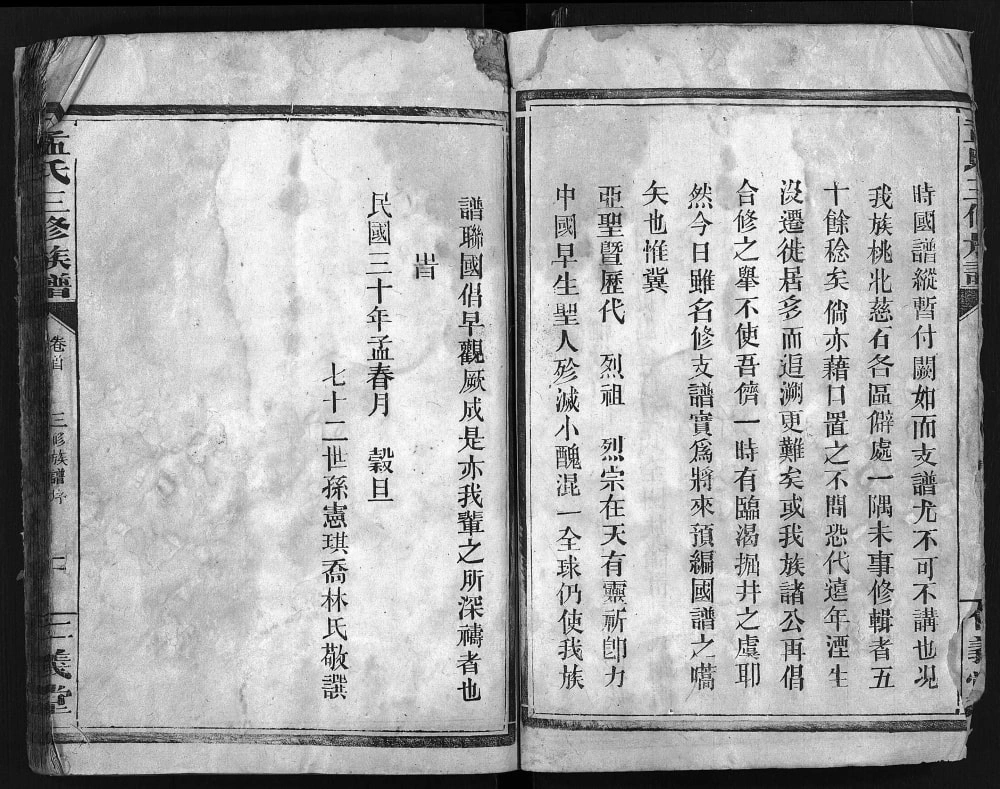 時國譜縱暫付闕如而支譜尤不可不講也况
我族桃北慈石各區僻處一隅未事修輯者五
十餘稔矣倘亦藉口置之不問恐代遠年湮生
没遷徙居多而追溯更難矣或我族諸公再倡
合修之舉不使吾儕一時有臨渴掘井之虞耶
然今日雖名修支譜實爲將來預編國譜之嚆
矢也惟冀
亞聖暨歷代 烈祖 烈宗在天有靈祈卽力
中國早生聖人殄滅小醜混一全球仍使我族
譜聯國倡早觀厥成是亦我輩之所深禱者也
旹
民國三十年孟春月 穀旦
七十二世孫憲琪喬林氏敬譔
孟氏三修族譜
卷首
三修族譜序
二
仁義堂